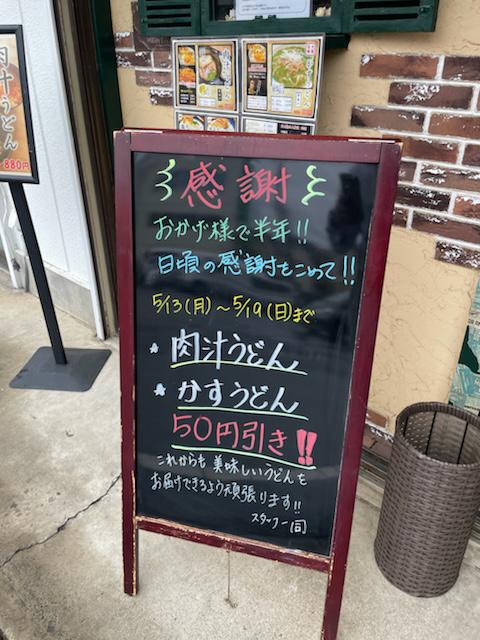 肉汁うどん
880円
感謝
おかげ様で半年!!
日頃の感謝をこめて!!
5/13(月)～5/19(日)まで
★肉汁うどん
★かすうどん
50円引き!!
これからも美味しいうどんを
お届けできるよう頑張ります!!
スタッフ一同